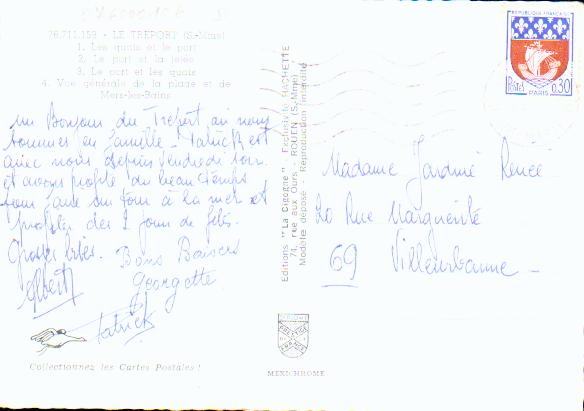 76.711.159 - LE TRÉPORT (S.-Mme)
1. Les quais et le port
2. Le port et la jetée
3. Le port et les quais
4. Vue générale de la plage et de
Mers-les-Bains
un Bonjour du Tréport où nous
sommes en famille - Patrick est
avec nous depuis Vendredi soir
et avons profité du beau temps
pour faire un tour à la mer et
profiter des 2 jours de fête.
Grosses bises. Bons Baisers
Albert Georgette
Patrick
Collectionnez les Cartes Postales !
Editions "La Cigogne" - Exclusivité HACHETTE
74, rue aux Ours - ROUEN (S.-Mme)
Modèle déposé Reproduction interdite
MEXICHROME
REPUBLIQUE FRANÇAISE
Postes 0,30
PARIS
Madame Jardiné Renée
20 Rue Marguerite
69 Villeurbanne -